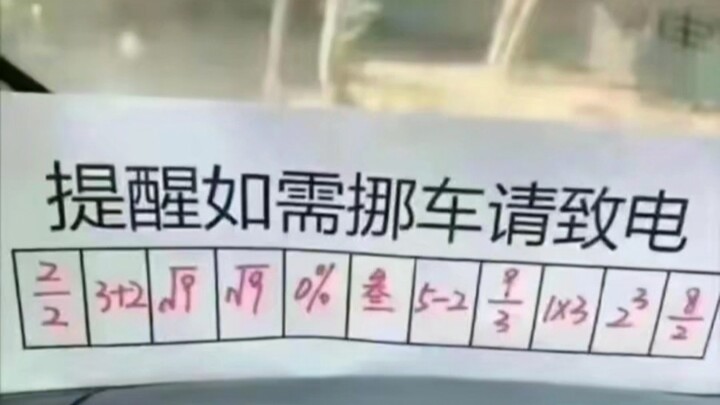 提醒如需挪车请致电
2/2 3+2 √9 √9 0% 叁 5-2 9/3 1×3 2³ 8/2